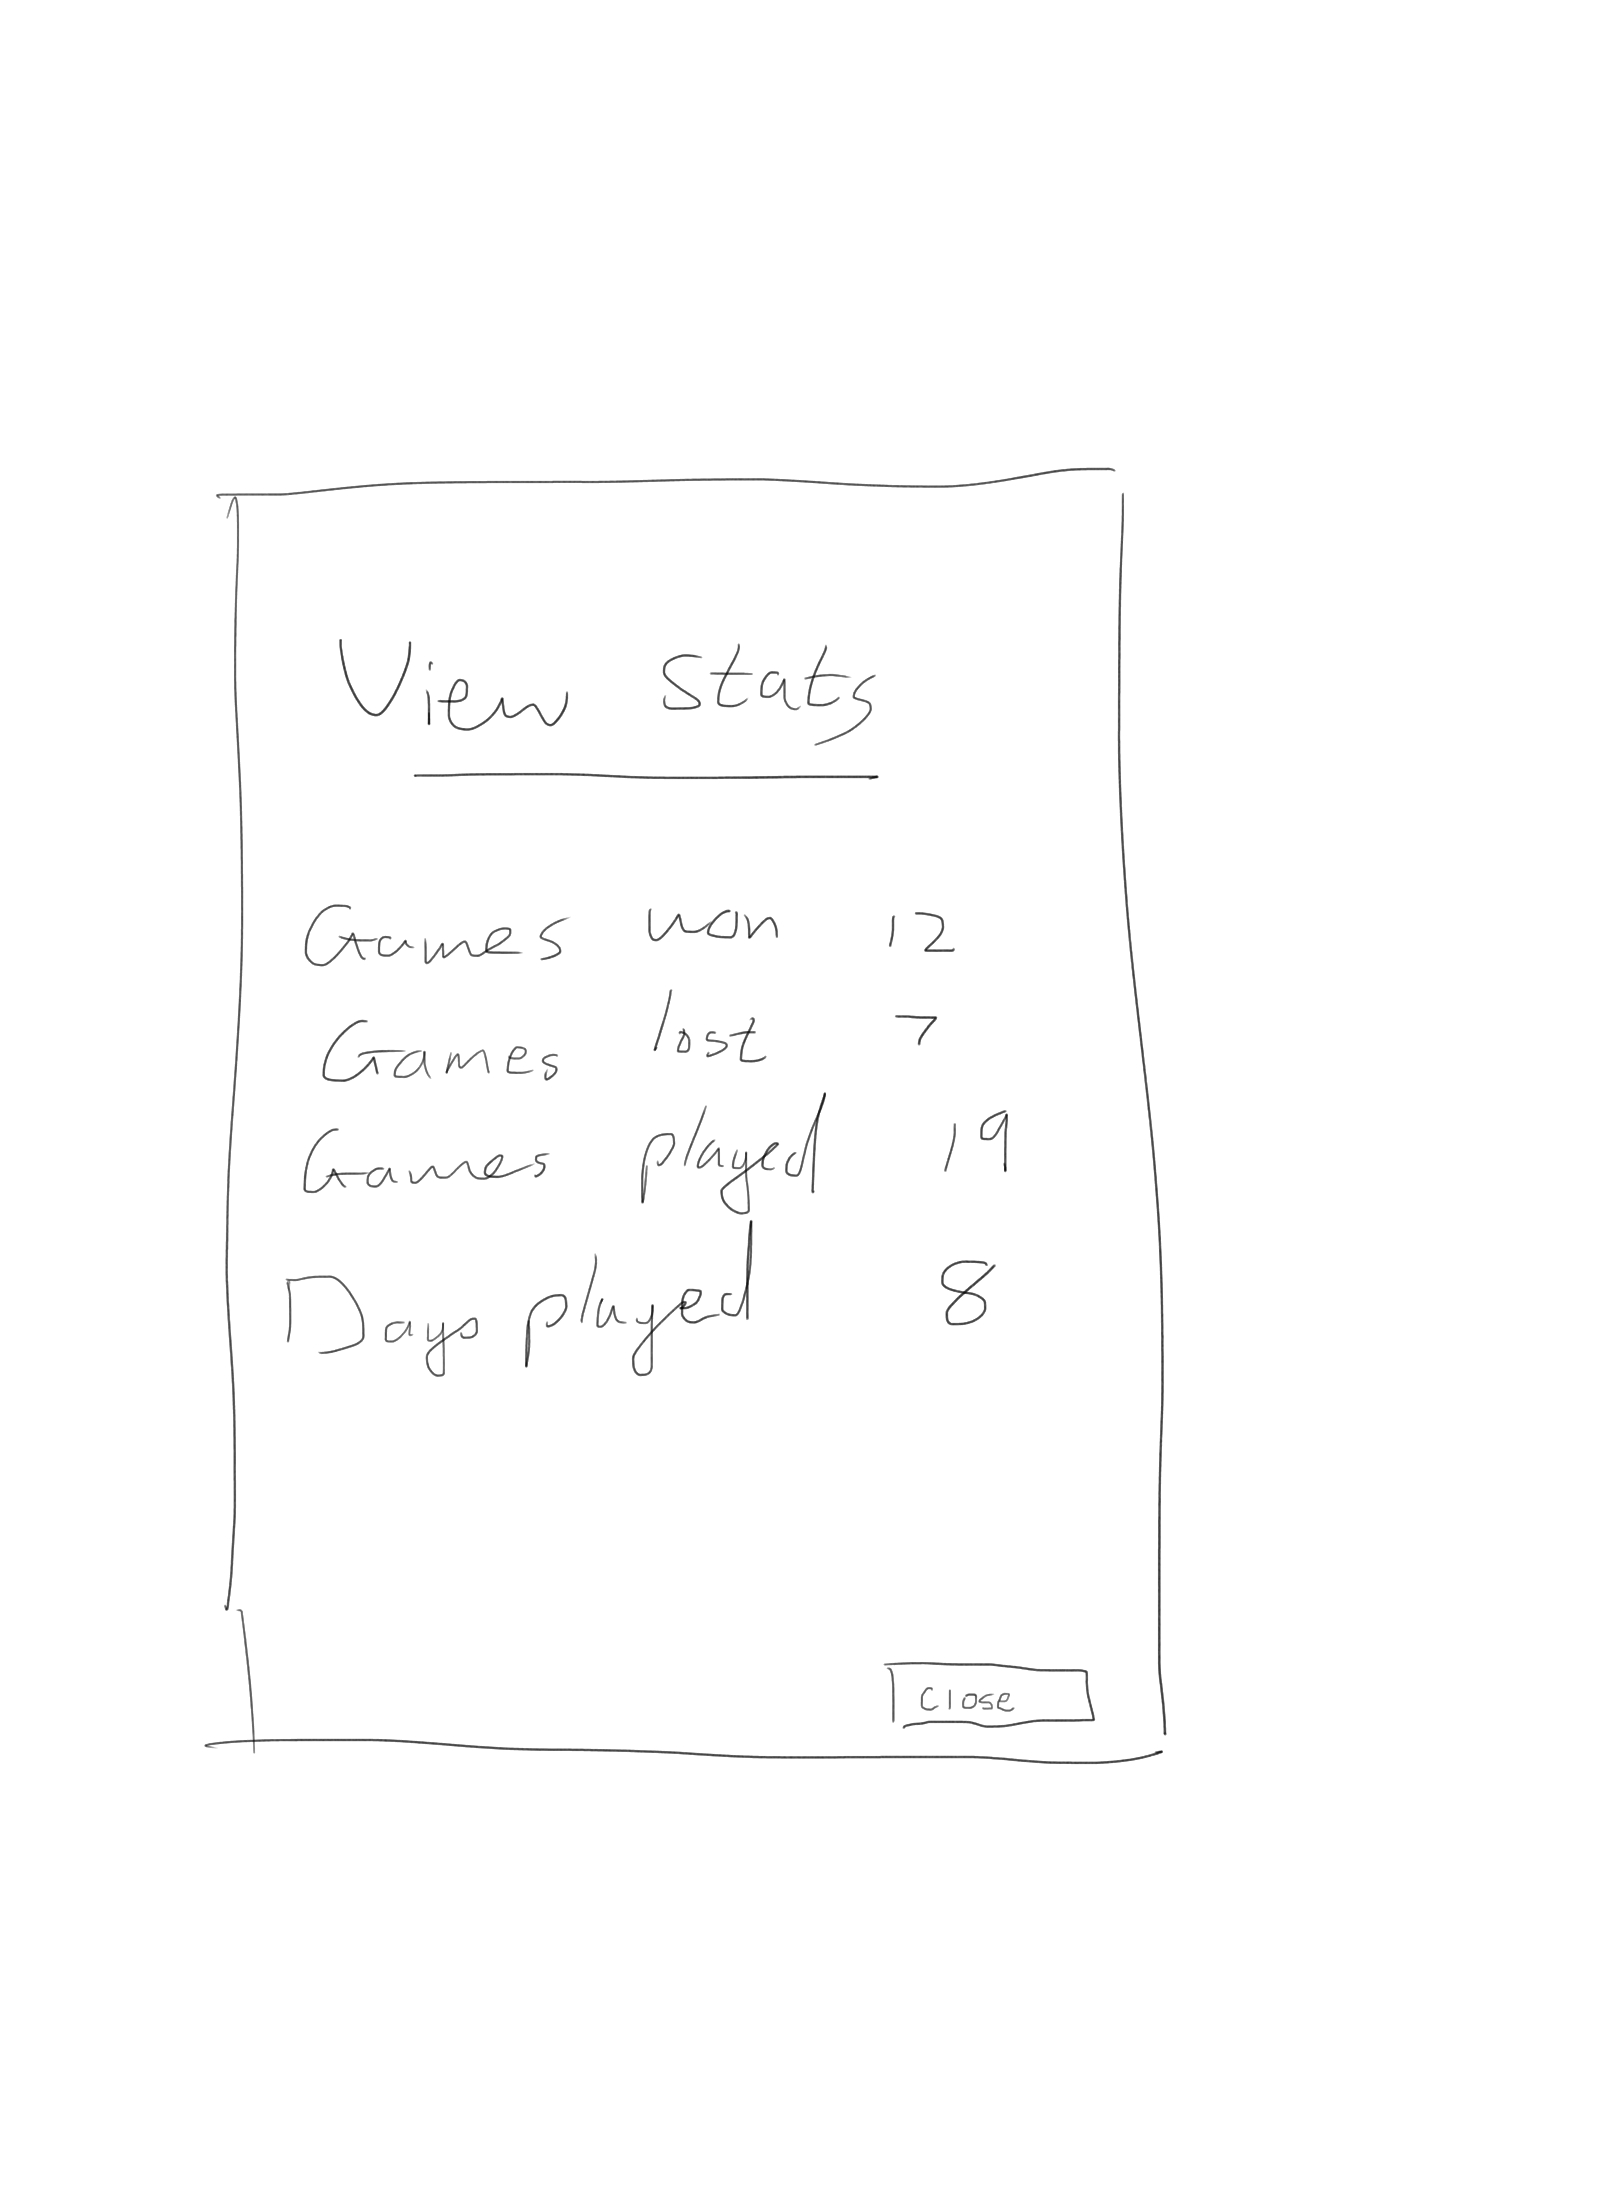 View Stats
Games won 12
Games lost 7
Games played 19
Days played 8
Close